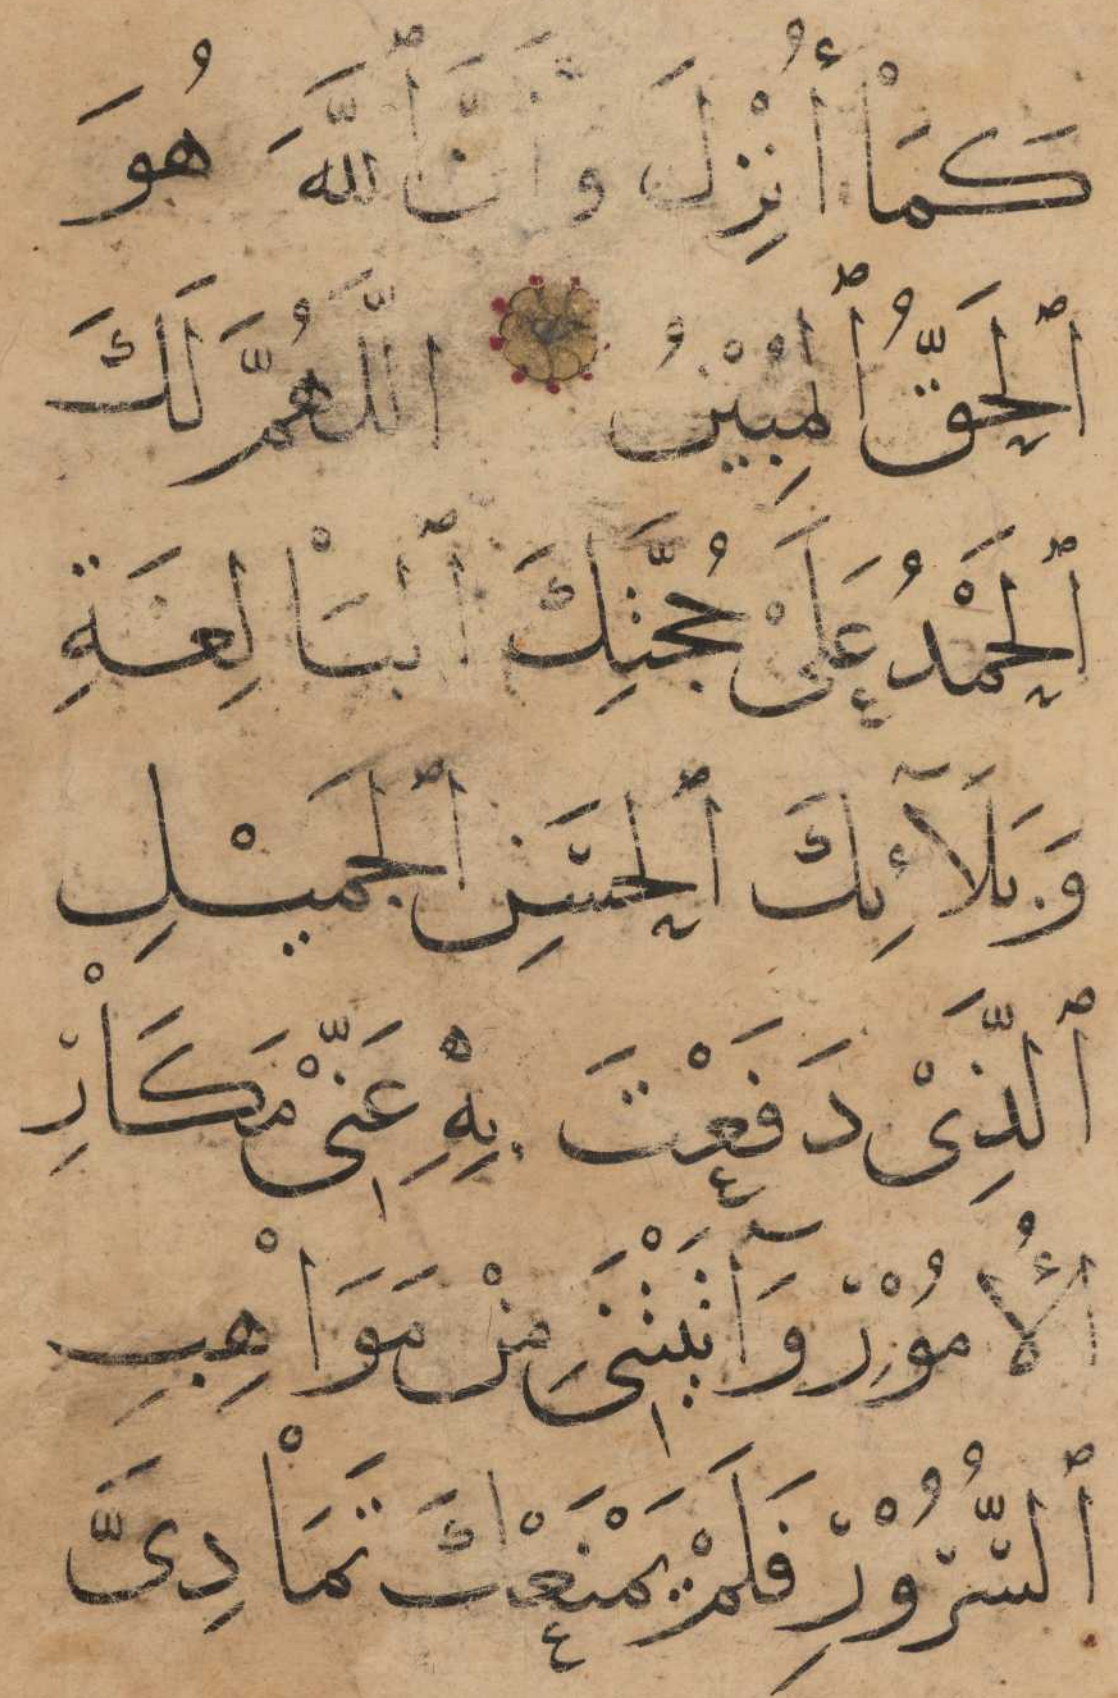 كَمَاْ أُنْزِلَ وَأَنَّ ٱللَّهَ هُوَ
ٱلْحَقُّ ٱلْمُبِيْنُ اللَّهُمَّ لَكَ
ٱلْحَمْدُ عَلَىْ حُجَّتِكَ ٱلْبَاْلِغَةِ
وَبَلَآئِكَ ٱلْحَسَنِ ٱلْجَمِيْلِ
ٱلَّذِىْ دَفَعْتَ بِهِ عَنِّىْ مَكَاْرِهْ
الْأُمُوْرِ وَآتَيْتَنِىْ مِنْ مَوَاْهِبِ
ٱلسُّرُوْرِ فَلَمْ يَمْنَعْكَ تَمَاْدِىَّ